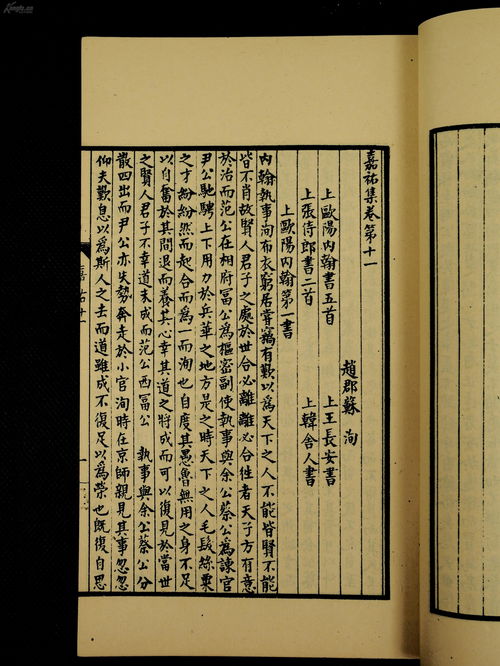 嘉祐集卷第十一
趙郡蘇 洵
上歐陽內翰書五首 上王長安書
上張侍郎書二首 上韓舍人書
上歐陽內翰第一書
內翰執事洵布衣窮居嘗竊有歎以為天下之人不能皆賢不能
皆不肖故賢人君子之處於世合必離離必合往者天子方有意
於治而范公在相府富公為樞密副使執事與余公蔡公為諫官
尹公馳騁上下用力於兵革之地方是之時天下之人毛髮絲粟
之才紛紛然而起合而為一而洵也自度其愚魯無用之身不足
以自奮於其間退而養其心幸其道之將成而可以復見於當世
之賢人君子不幸道未成而范公西富公 執事與余公蔡公分
散四出而尹公亦失勢奔走於小官洵時在京師親見其事忽忽
仰天歎息以為斯人之去而道雖成不復足以為榮也既復自思
嘉祐十一
一
Kongfz.cn